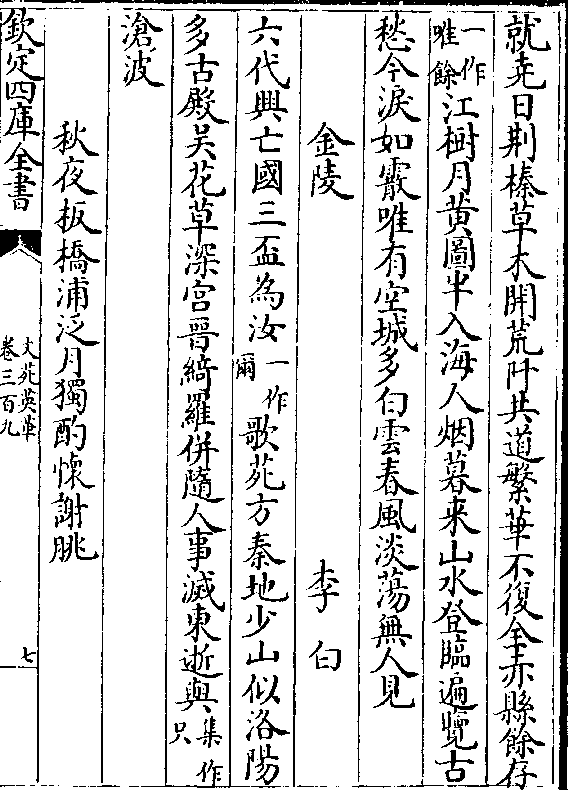 就尭日荆榛草木開荒阡共道繁華不復全赤縣餘存
一作唯餘江樹月黄圖半入海人烟暮来山水登臨遍覽古
愁今淚如霰唯有空城多白雲春風淡蕩無人見
金陵 李白
六代興亡國三盃為汝一作爾歌苑方秦地少山似洛陽
多古殿吴花草深宫晉綺羅併隨人事滅東逝與集作只
滄波
秋夜板橋浦泛月獨酌懷謝朓
欽定四庫全書
文苑英華
卷三百九
七